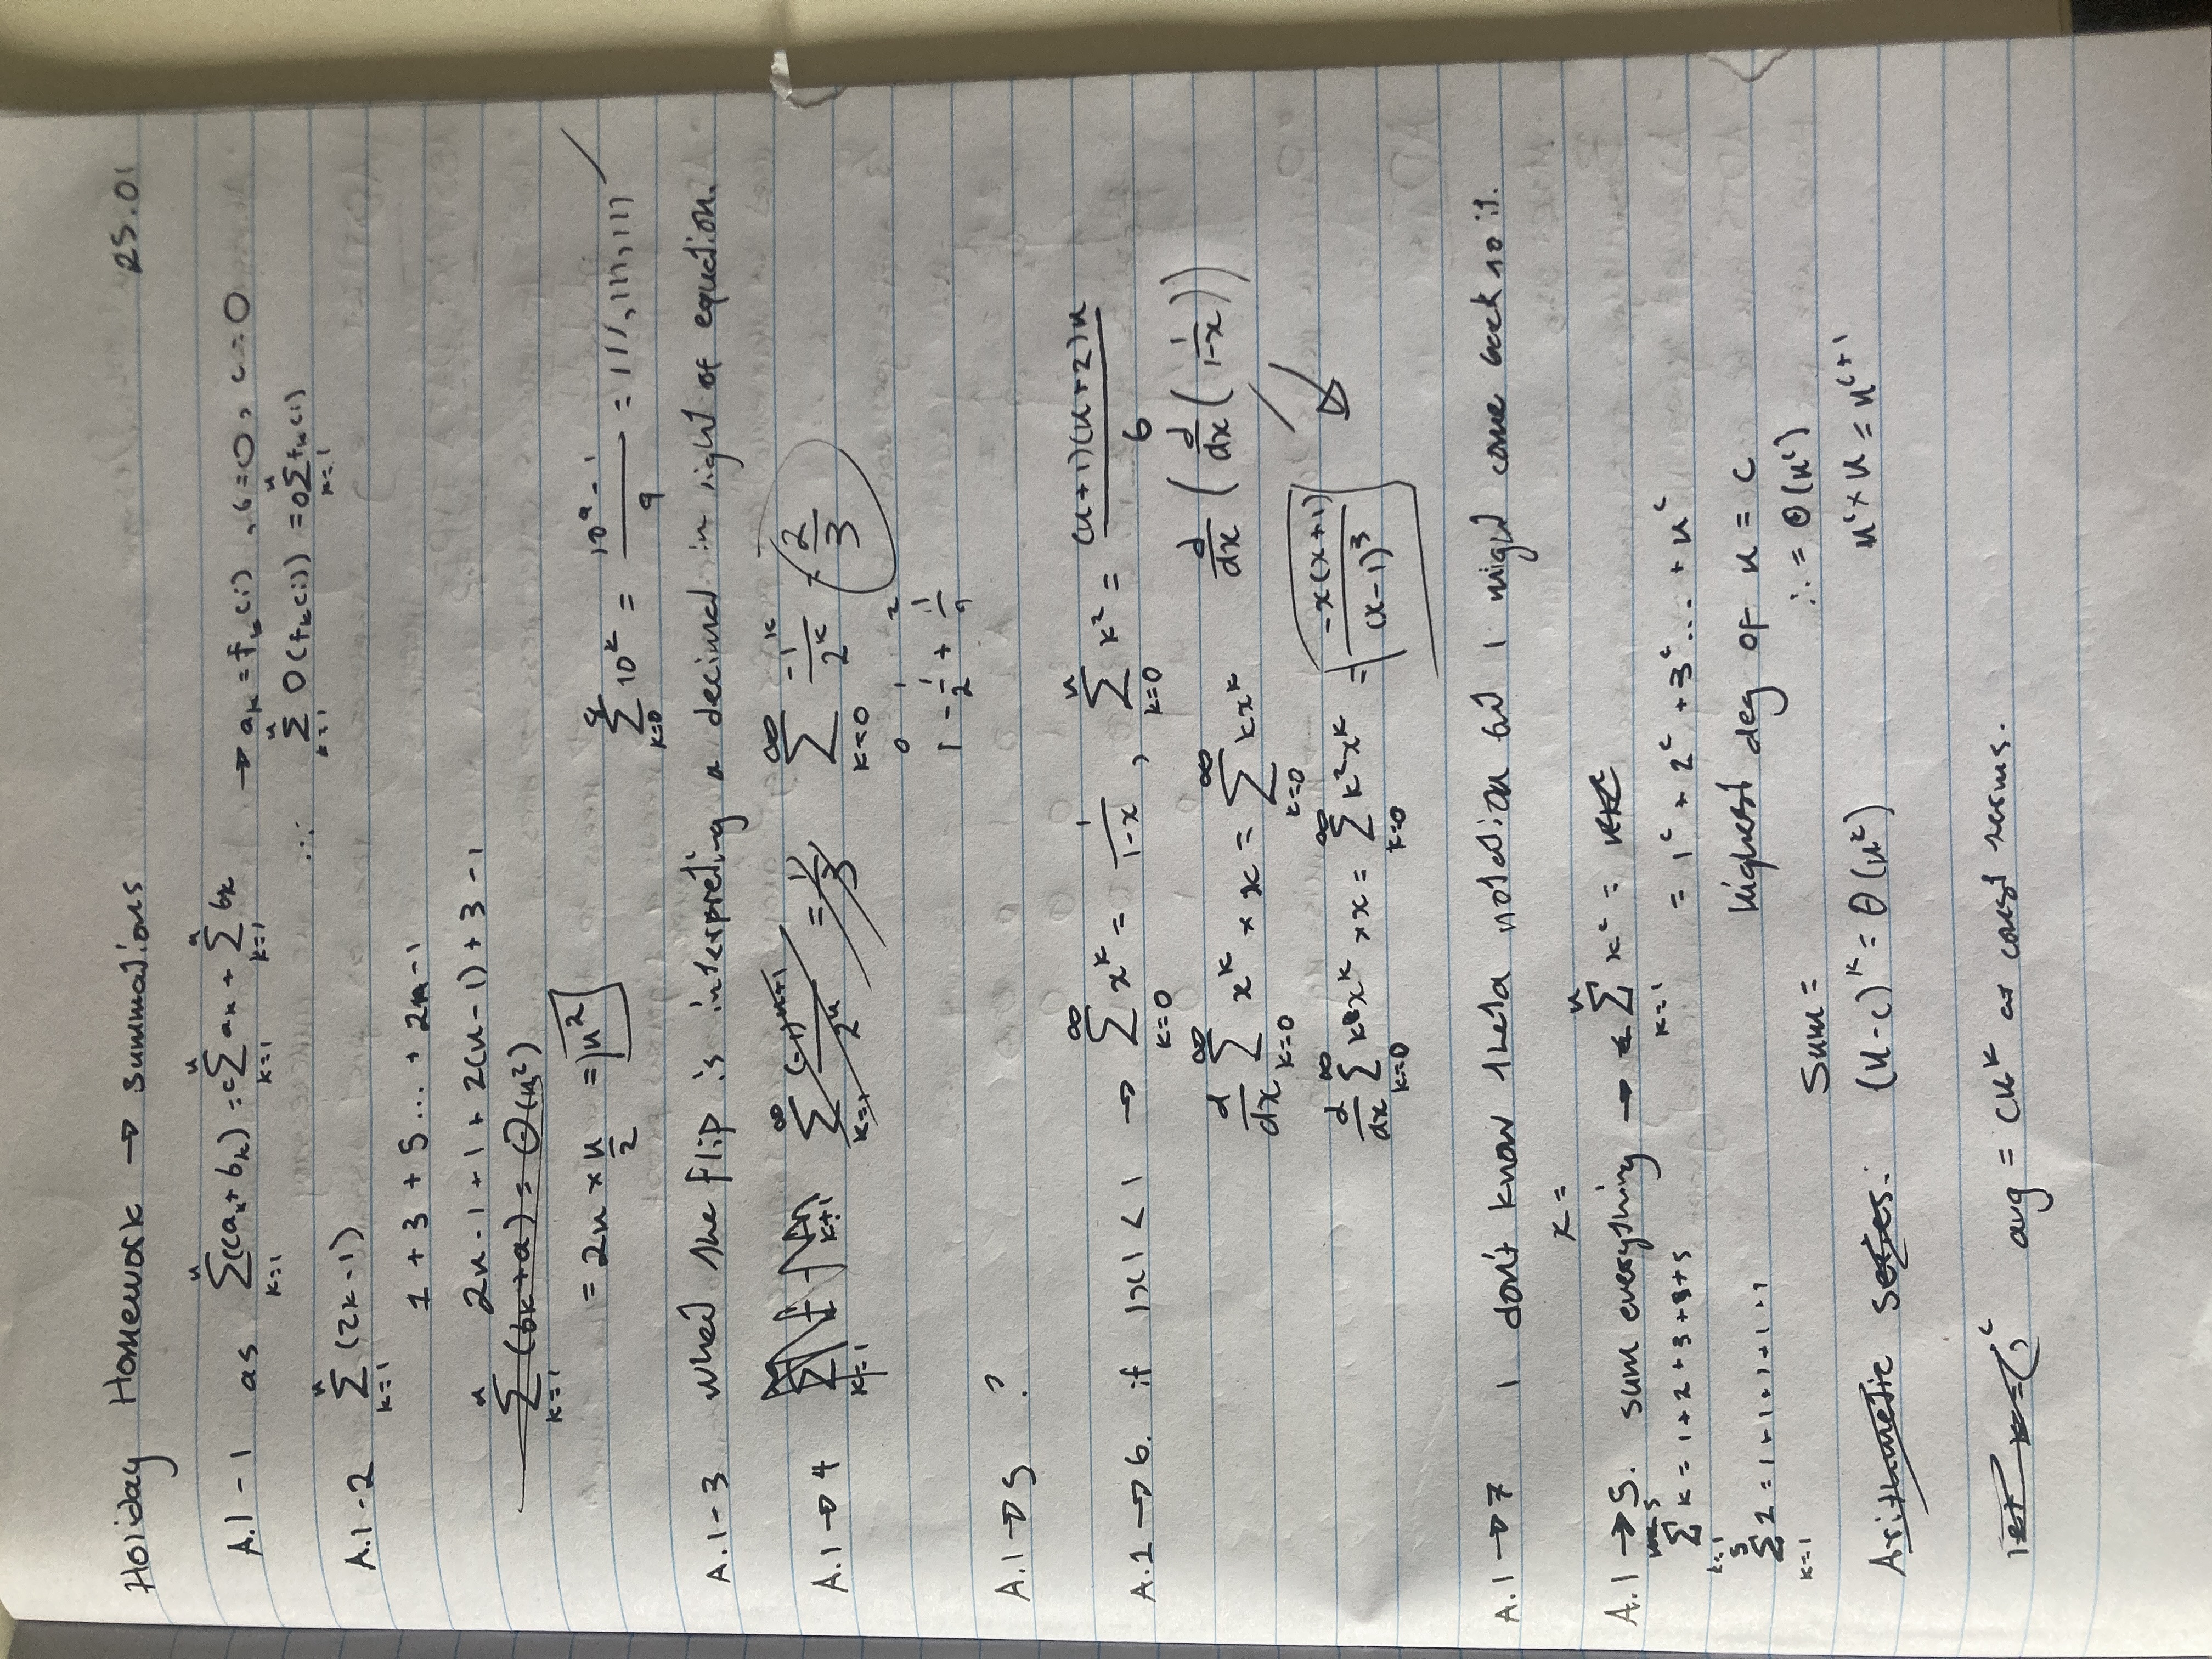 Holiday Homework → summations 25.01
A.1-1 as ∑_{k=1}^{n} (ca_k + b_k) = c∑_{k=1}^{n} a_k + ∑_{k=1}^{n} b_k → a_k = f_k(i) , b=0, c=O
∴ ∑_{k=1}^{n} O(f_k(i)) = O∑_{k=1}^{n} f_k(i)
A.1-2 ∑_{k=1}^{n} (2k-1)
1 + 3 + 5 ... + 2n-1
2n-1+1+2(n-1)+3-1
∑_{k=1}^{n} (bk+a) = Θ(n²)
= 2n × n/2 = n²
∑_{k=0}^{8} 10^k = (10^9 - 1)/9 = 111,111,111 ✓
A.1-3 what the flip is interpreting a decimal in right of equation.
A.1→4 ∑_{k=1}^{∞} (-1)^{k+1}/2^k = 1/3 ∑_{k=0}^{∞} -1^k/2^k = 2/3
0 1 2
1 - 1/2 + 1/4
A.1→5 ?
A.1→6. if |x| < 1 → ∑_{k=0}^{∞} x^k = 1/(1-x) , ∑_{k=0}^{n} k² = (n+1)(n+2)n/6
d/dx ∑_{k=0}^{∞} x^k × x = ∑_{k=0}^{∞} kx^k d/dx (d/dx (1/(1-x)))
d/dx ∑_{k=0}^{∞} kx^k × x = ∑_{k=0}^{∞} k²x^k = -x(x+1)/(x-1)³
A.1→7 I don't know theta notation but I might come back to it.
x =
A.1→5. sum everything → ∑_{k=1}^{n} k^c =
∑_{k=1}^{5} k = 1+2+3+4+5 = 1^c + 2^c + 3^c ... + n^c
∑_{k=1}^{5} 2 = 1+1+1+1+1 highest deg of n = c
Sum = ∴ = Θ(n^c)
Arithmetic series: (n-c)^k = Θ(n^k) n^c × n = n^{c+1}
let avg = cn^k at const terms.